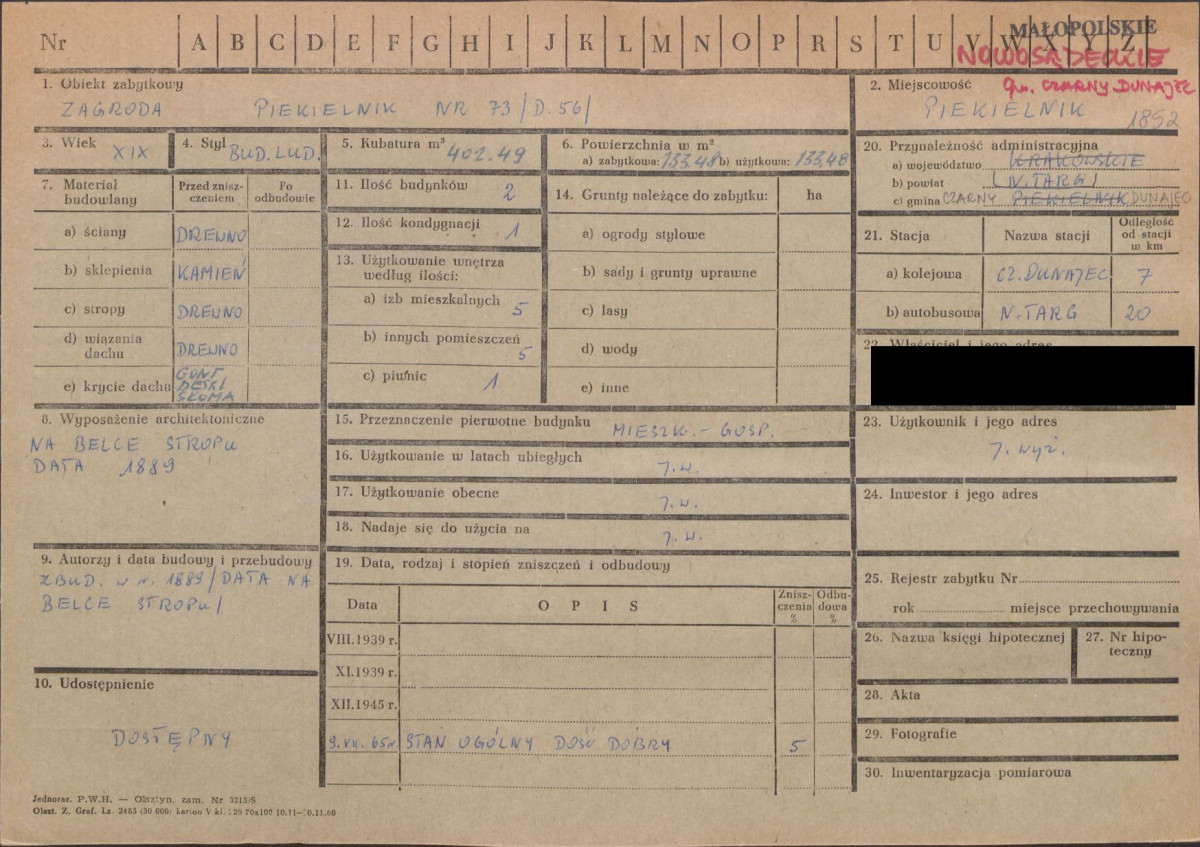 Nr A B C D E F G H I J K L M N O P R S T U V W X Y Z
MAŁOPOLSKIE
NOWOSĄDECKIE
1. Obiekt zabytkowy
ZAGRODA PIEKIELNIK NR 73/D.56/
2. Miejscowość gm. CZARNY DUNAJEC
PIEKIELNIK 1852
3. Wiek XIX
4. Styl BUD. LUD.
5. Kubatura m³ 402.49
6. Powierzchnia w m²
a) zabytkowa: 133,48 b) użytkowa: 133,48
20. Przynależność administracyjna
a) województwo KRAKOWSKIE
b) powiat (N.TARG)
c) gmina CZARNY PIEKIELNIK DUNAJEC
7. Materiał budowlany
Przed zniszczeniem
Po odbudowie
a) ściany DREWNO
b) sklepienia KAMIEŃ
c) stropy DREWNO
d) wiązania dachu DREWNO
e) krycie dachu GONT
DESKI
SŁOMA
11. Ilość budynków 2
12. Ilość kondygnacji 1
13. Użytkowanie wnętrza
według ilości:
a) izb mieszkalnych 5
b) innych pomieszczeń 5
c) piwnic 1
14. Grunty należące do zabytku: ha
a) ogrody stylowe
b) sady i grunty uprawne
c) lasy
d) wody
e) inne
21. Stacja Nazwa stacji Odległość
od stacji
w km
a) kolejowa CZ. DUNAJEC 7
b) autobusowa N. TARG 20
22. Właściciel i jego adres
8. Wyposażenie architektoniczne
NA BELCE STROPU
DATA 1889
15. Przeznaczenie pierwotne budynku MIESZK. - GOSP.
16. Użytkowanie w latach ubiegłych J.W.
17. Użytkowanie obecne J.W.
18. Nadaje się do użycia na J.W.
23. Użytkownik i jego adres
J. wyż.
24. Inwestor i jego adres
9. Autorzy i data budowy i przebudowy
ZBUD. w r. 1889/DATA NA
BELCE STROPU/
19. Data, rodzaj i stopień zniszczeń i odbudowy
Data OPIS Zniszczenia % Odbudowa %
VIII.1939 r.
XI.1939 r.
XII.1945 r.
9.VII.65r. STAN OGÓLNY DOŚĆ DOBRY 5
25. Rejestr zabytku Nr
rok miejsce przechowywania
26. Nazwa księgi hipotecznej
27. Nr hipoteczny
10. Udostępnienie
DOSTĘPNY
28. Akta
29. Fotografie
30. Inwentaryzacja pomiarowa
Jednoraz. P.W.H. — Olsztyn, zam. Nr 3215/S
Olszt. Z. Graf. Lz. 2485 (30 000) karton V kl. 120 70x100 10.11—10.11.60